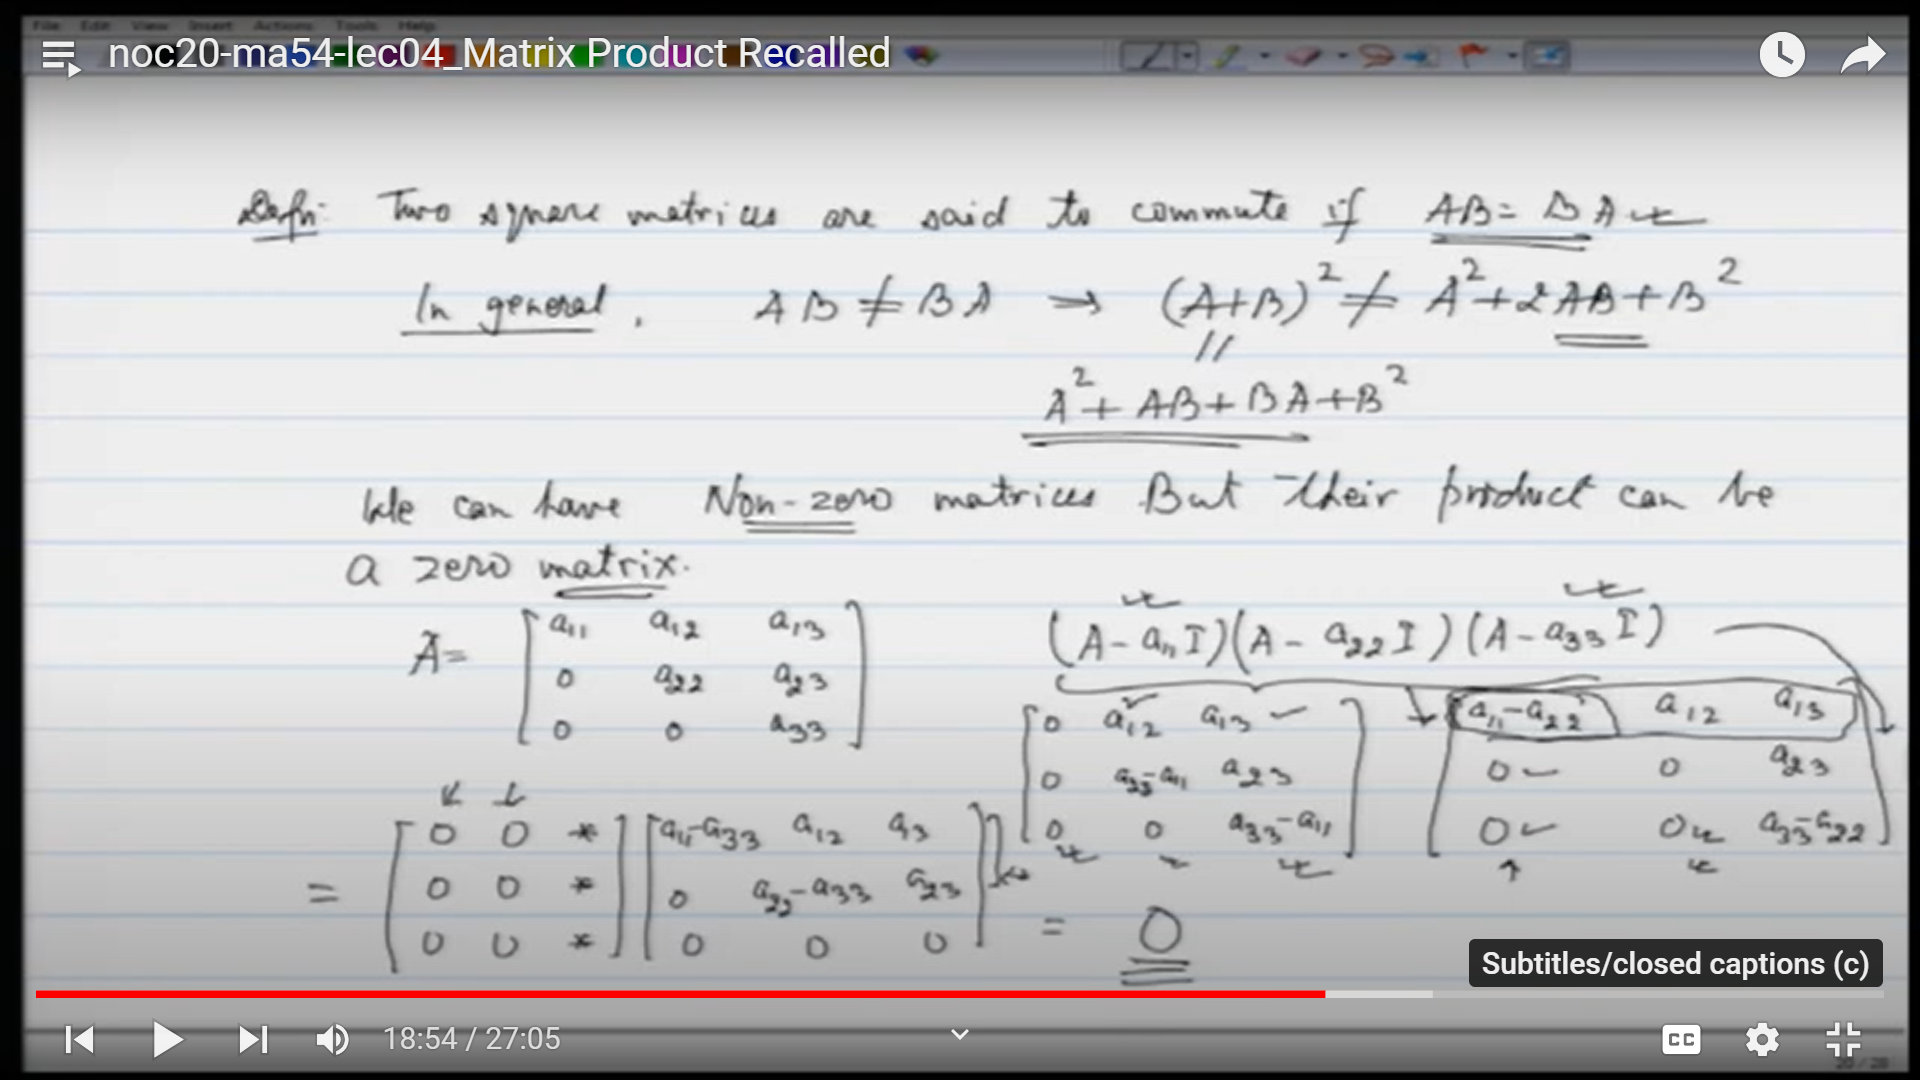 File Edit View Insert Actions Tools Help
noc20-ma54-lec04_Matrix Product Recalled
Defn: Two square matrices are said to commute if AB = BA
In general, AB ≠ BA → (A+B)² ≠ A²+2AB+B²
//
A²+AB+BA+B²
We can have Non-zero matrices But their product can be
a zero matrix.
A = [a₁₁ a₁₂ a₁₃
0 a₂₂ a₂₃
0 0 a₃₃]
(A-a₁₁I)(A-a₂₂I)(A-a₃₃I)
[0 a₁₂ a₁₃
0 a₂₂-a₁₁ a₂₃
0 0 a₃₃-a₁₁]
[a₁₁-a₂₂ a₁₂ a₁₃
0 0 a₂₃
0 0 a₃₃-a₂₂]
= [0 0 *
0 0 *
0 0 *]
[a₁₁-a₃₃ a₁₂ a₁₃
0 a₂₂-a₃₃ a₂₃
0 0 0]
= 0
Subtitles/closed captions (c)
18:54 / 27:05
CC